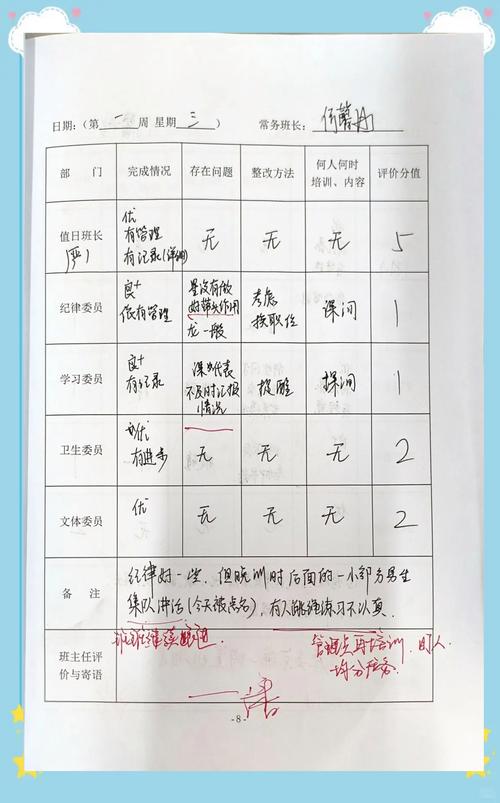 日期:(第 一 周 星期 三 ) 常务班长:
部 门 完成情况 存在问题 整改方法 何人何时培训、内容 评价分值
值日班长 优 无 无 无 5
有管理
有记录(详细)
纪律委员 良+ 没有做 考虑 课间 1
但有管理 好带头作用 换职位
一般
学习委员 良+ 课代表 提醒 课间 1
有记录 不及时汇报
情况
卫生委员 优 无 无 无 2
有进步
文体委员 优 无 无 无 2
备 注 纪律好一些,但晚训时后面的一小部分男生
集队讲话(今天被点名),有人跳绳练习不认真。
班主任评价与寄语 再培训
均分任务
- 8 -